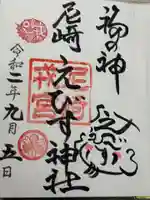 福の神
尼崎えびす神社
尼崎戎宮
令和二年九月五日